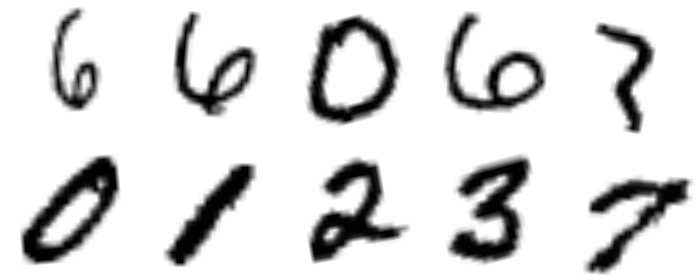 6 6 0 6
0 1 2 3 7